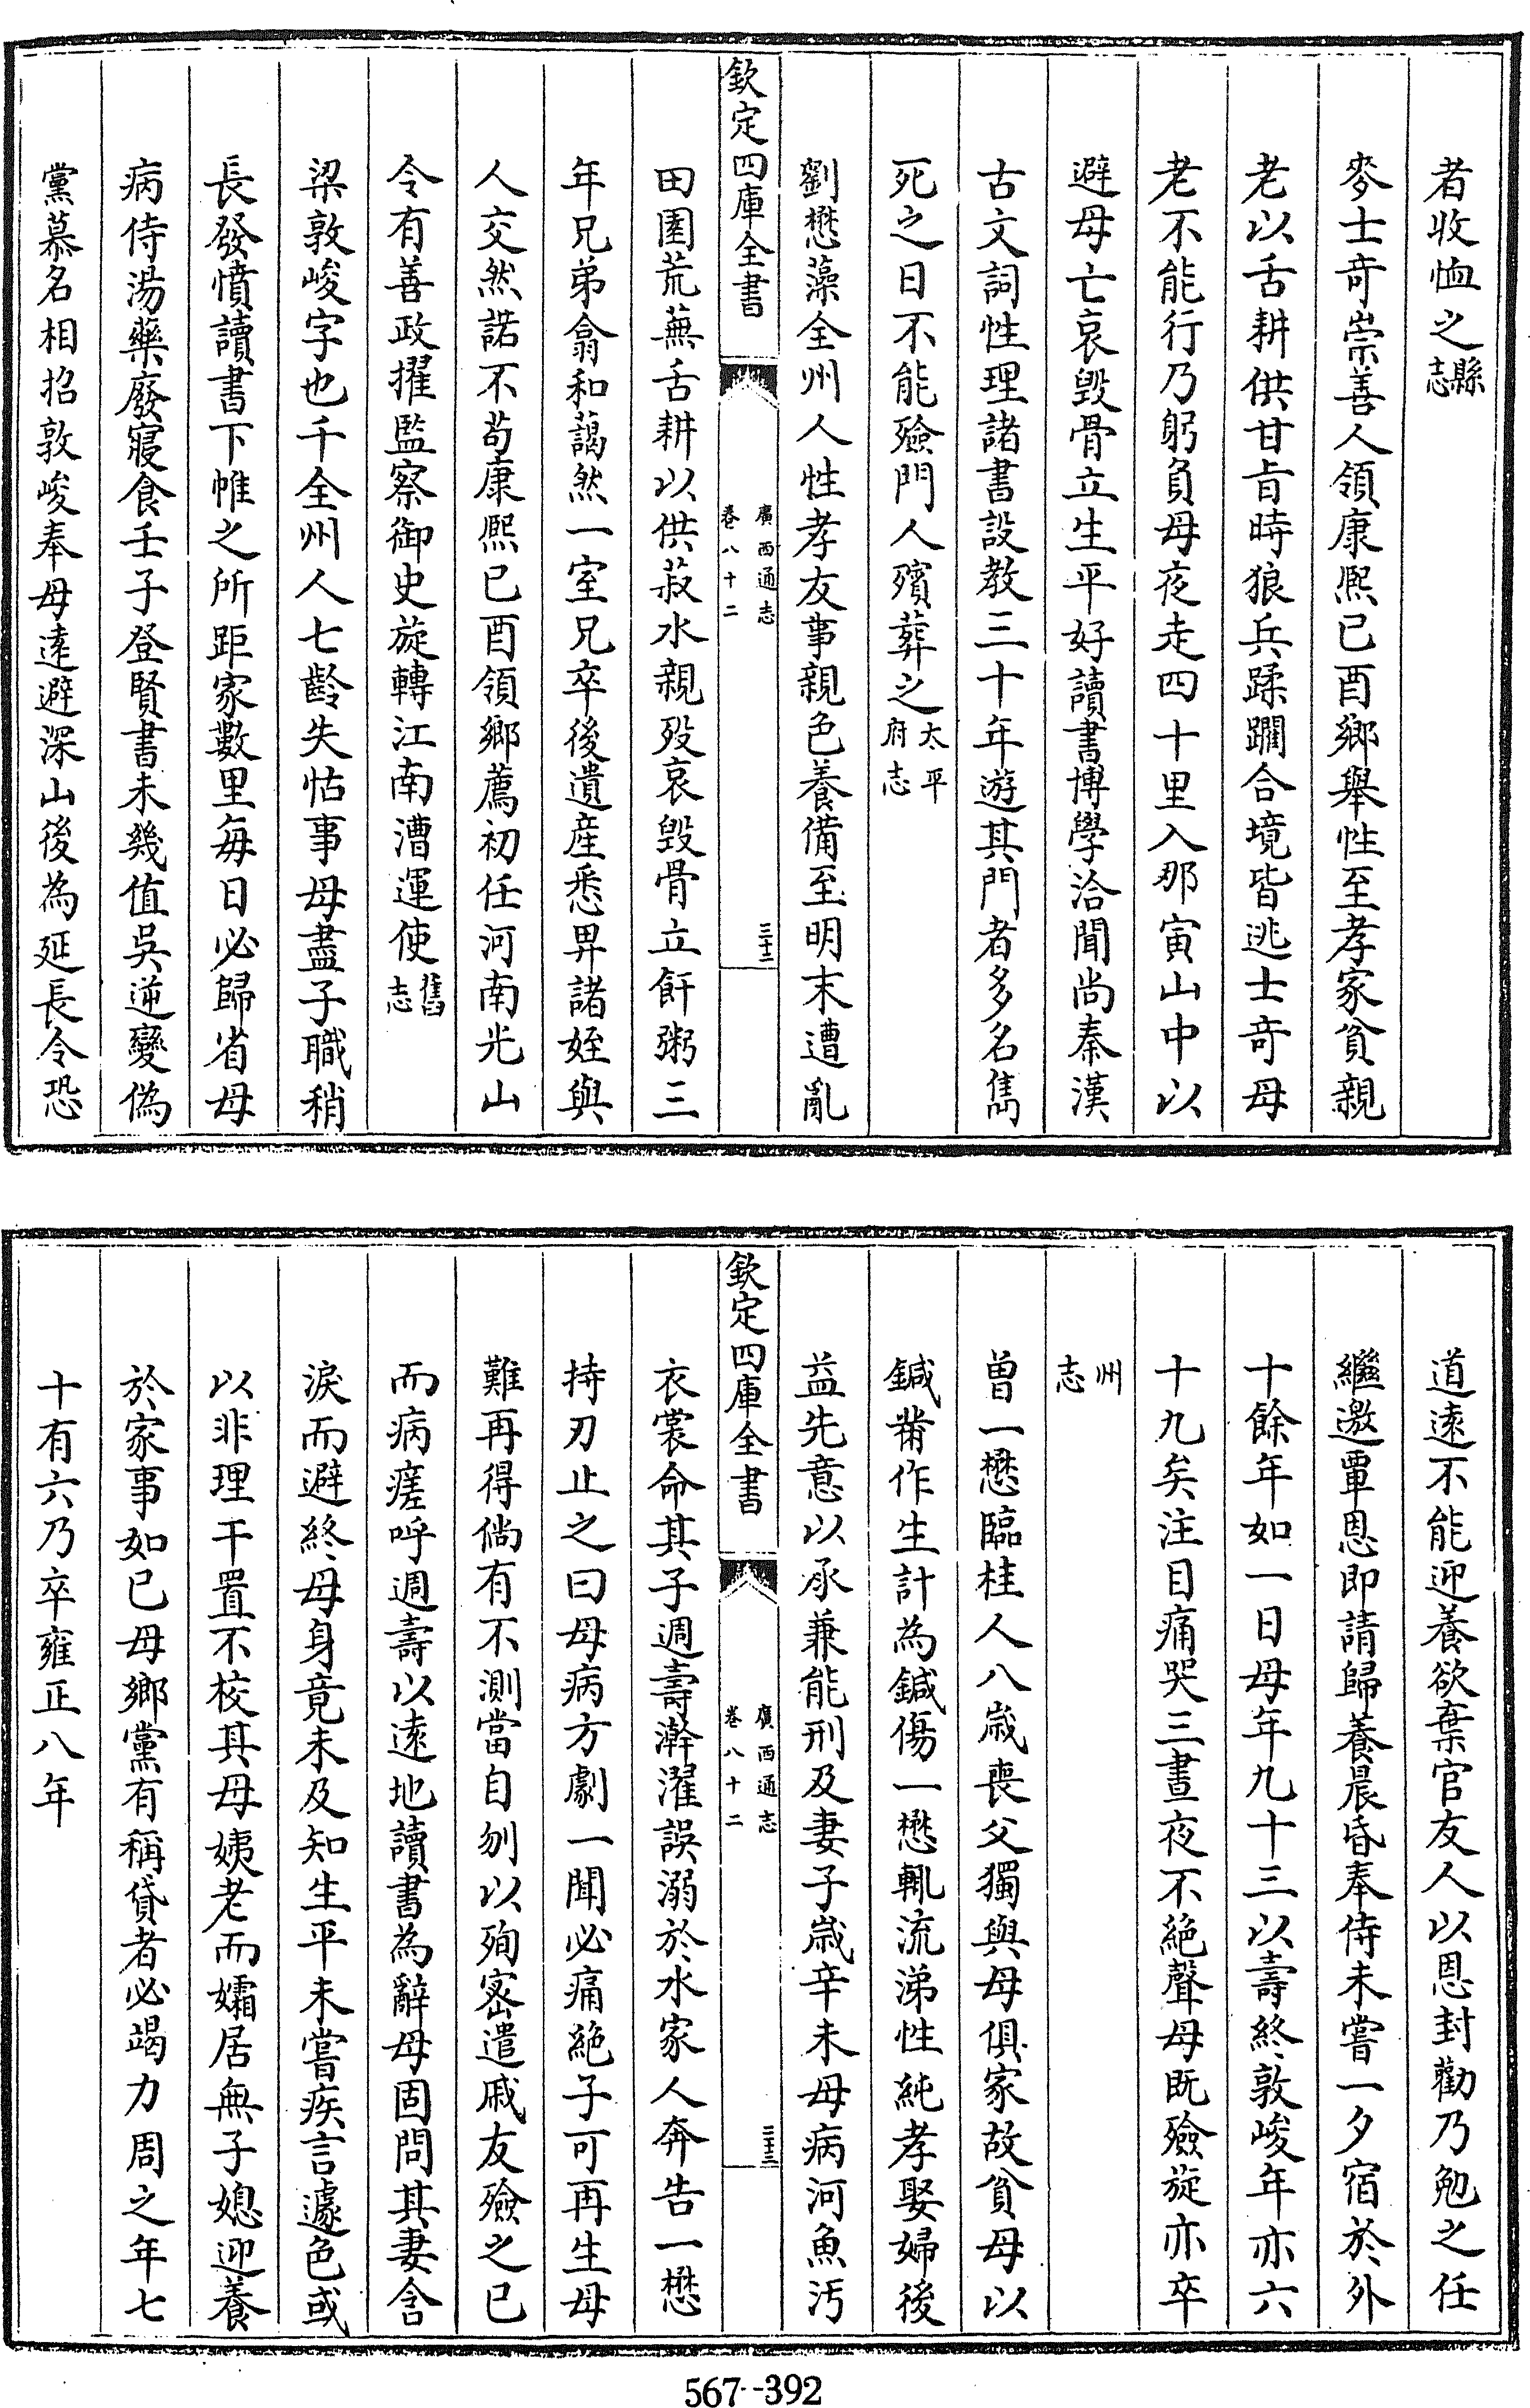 者收恤之縣志
麥士奇崇善人領康熙己酉鄉舉性至孝家貧親
老以舌耕供甘旨時狼兵蹂躪合境皆逃士奇母
老不能行乃躬負母夜走四十里入那寅山中以
避母亡哀毀骨立生平好讀書博學洽聞尚秦漢
古文詞性理諸書設教三十年遊其門者多名雋
死之日不能殮門人殯葬之太平府志
劉懋藻全州人性孝友事親色養備至明末遭亂
欽定四庫全書
廣西通志
卷八十二
三十二
田園荒蕪舌耕以供菽水親歿哀毀骨立飦粥三
年兄弟翕和藹然一室兄卒後遺產悉畀諸姪與
人交然諾不茍康熙己酉領鄉薦初任河南光山
令有善政擢監察御史旋轉江南漕運使舊志
梁敦峻字也千全州人七齡失怙事母盡子職稍
長發憤讀書下帷之所距家數里每日必歸省母
病侍湯藥廢寢食壬子登賢書未幾值吳逆變偽
黨慕名相招敦峻奉母遠避深山後為延長令恐
道遠不能迎養欲棄官友人以恩封勸乃勉之任
繼邀覃恩即請歸養晨昏奉侍未嘗一夕宿於外
十餘年如一日母年九十三以壽終敦峻年亦六
十九矣注目痛哭三晝夜不絕聲母既殮旋亦卒
州志
曾一懋臨桂人八歲喪父獨與母俱家故貧母以
鍼黹作生計為鍼傷一懋輒流涕性純孝娶婦後
益先意以承兼能刑及妻子歲辛未母病河魚汚
欽定四庫全書
廣西通志
卷八十二
三十三
衣裳命其子週壽澣濯誤溺於水家人奔告一懋
持刃止之曰母病方劇一聞必痛絕子可再生母
難再得倘有不測當自刎以殉密遣戚友殮之已
而病瘥呼週壽以遠地讀書為辭母固問其妻含
淚而避終母身竟未及知生平未嘗疾言遽色或
以非理干置不校其母姨老而孀居無子媳迎養
於家事如己母鄉黨有稱貸者必竭力周之年七
十有六乃卒雍正八年
567-392